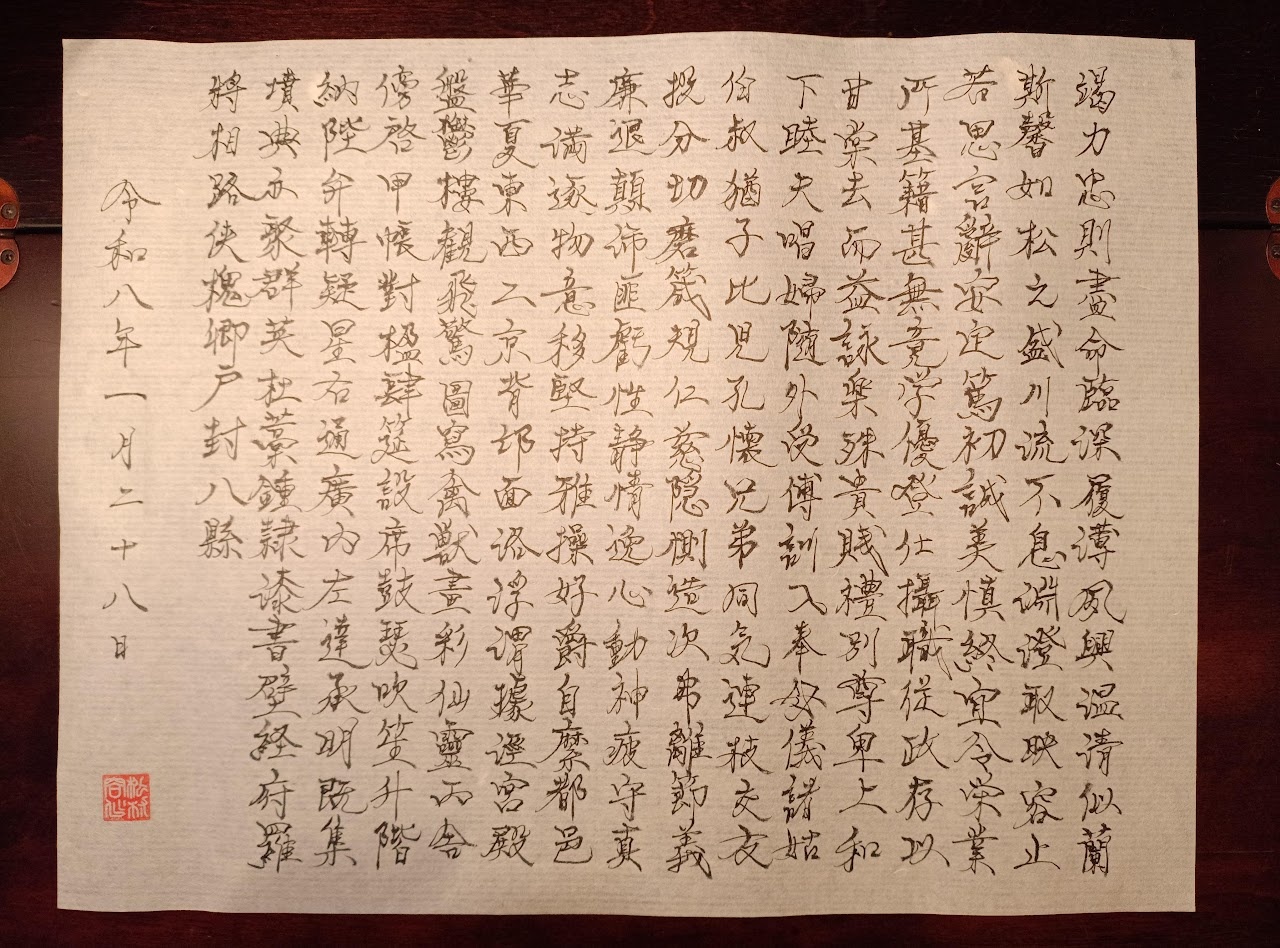 竭力忠則盡命臨深履薄夙興温清似蘭
斯馨如松之盛川流不息淵澄取映容止
若思言辭安定篤初誠美慎終宜令榮業
所基籍甚無竟学優登仕攝職従政存以
甘棠去而益詠楽殊貴賤禮別尊卑上和
下睦夫唱婦随外受傅訓入奉母儀諸姑
伯叔猶子比児孔懐兄弟同気連枝交友
投分切磨箴規仁慈隠惻造次弗離節義
廉退顛沛匪虧性静情逸心動神疲守真
志満逐物意移堅持雅操好爵自縻都邑
華夏東西二京背邙面洛浮渭據涇宮殿
盤鬱樓觀飛驚圖寫禽獣畫彩仙靈丙舎
傍啓甲帳對楹肆筵設席鼓瑟吹笙升階
納陛弁轉疑星右通廣内左達承明既集
墳典亦聚群英杜藁鍾隷漆書壁経府羅
將相路侠槐卿戸封八縣
令和八年一月二十八日